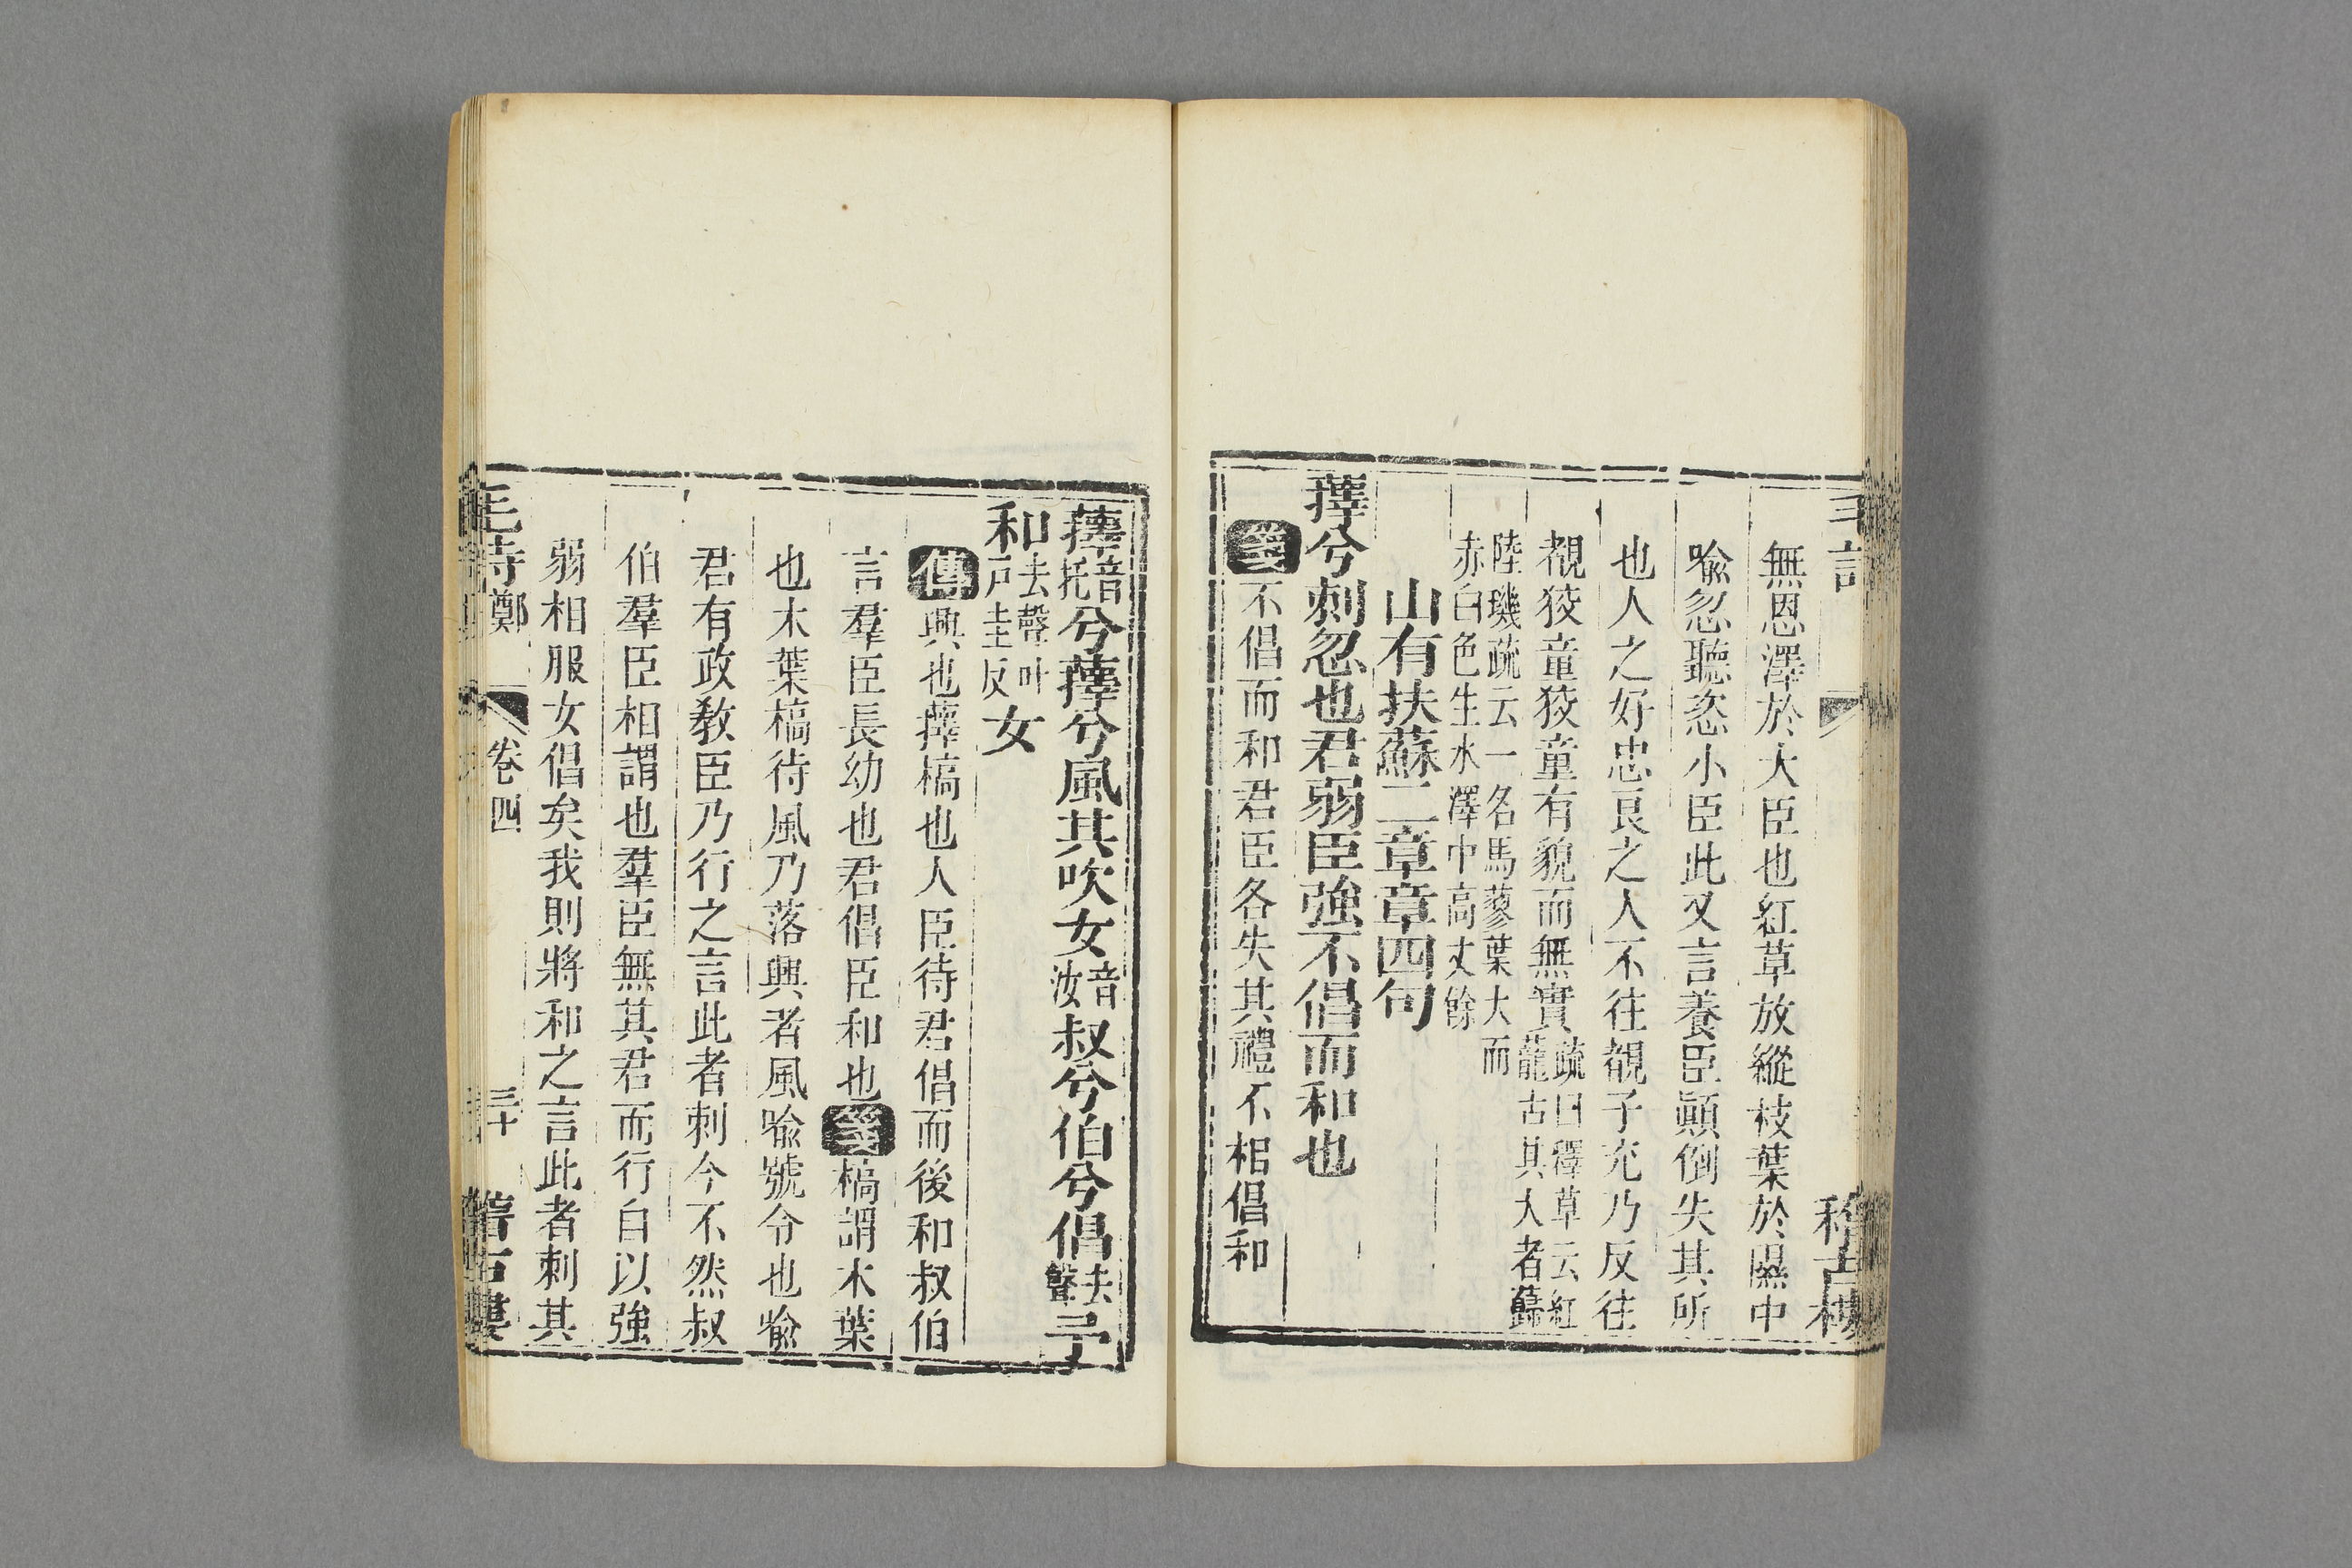 無恩澤於大臣也紅草放縱枝葉於隰中
喻忽聽恣小臣此又言養臣顛倒失其所
也人之好忠良之人不往覩子充乃反往
覩狡童狡童有貌而無實疏曰釋草云紅蘢古其大者蘬
陸璣疏云一名馬蓼葉大而
赤白色生水澤中高丈餘
山有扶蘇二章章四句
蘀兮刺忽也君弱臣強不倡而和也
箋不倡而和君臣各失其禮不相倡和
稽古樓
蘀音托兮蘀兮風其吹女音汝叔兮伯兮倡去聲予
和去聲叶戸圭反女
傳興也蘀槁也人臣待君倡而後和叔伯
言羣臣長幼也君倡臣和也箋槁謂木葉
也木葉槁待風乃落興者風喻號令也喻
君有政教臣乃行之言此者刺今不然叔
伯羣臣相謂也羣臣無其君而行自以強
弱相服女倡矣我則將和之言此者刺其
毛詩鄭 卷四 三十 稽古樓